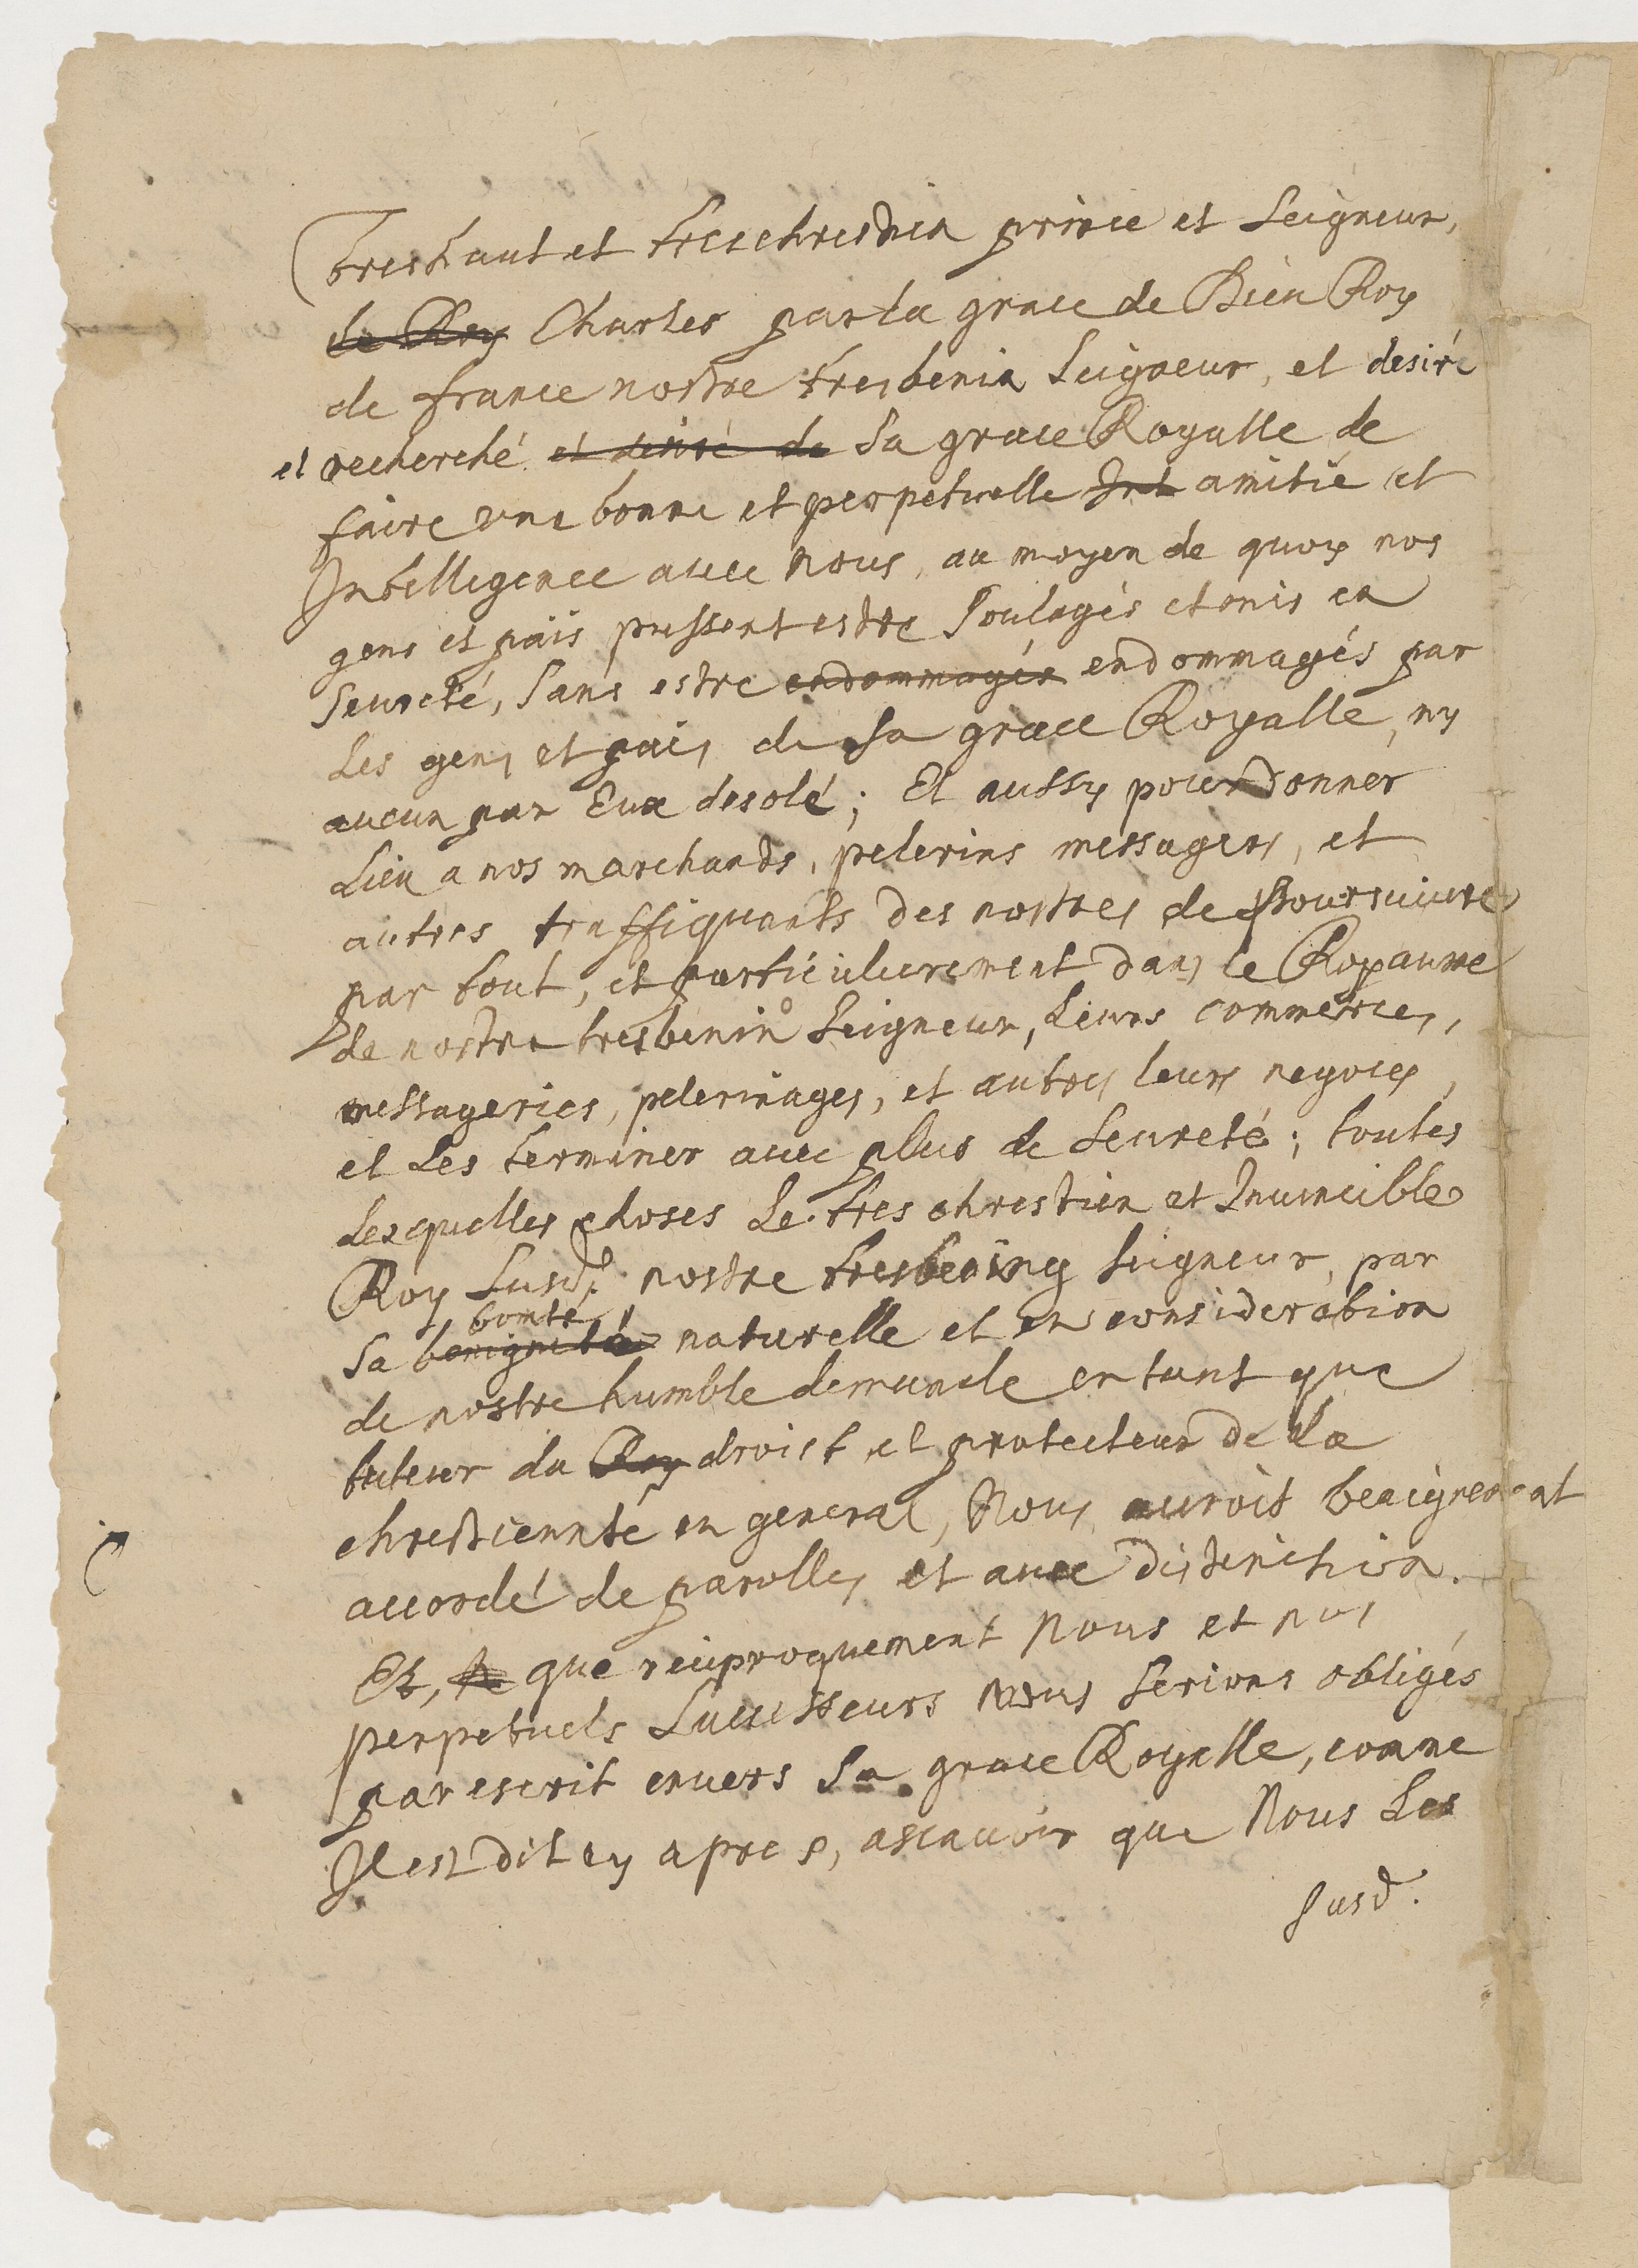 treshaut et treschrestien prince et Seigneur,
le Roy Charles par la grace de Dieu Roy
de france nostre tresbenin Seigneur, et desiré
et recherché et desiré de Sa grace Royalle de
faire une bonne et perpetuelle Int amitié et
Intelligence avec nous, au moyen de quoy nos
gens et païs pussent estre Soulagés et mis en
Seureté, Sans estre endommagés endommagés par
Les gens et païs de Sa grace Royalle, ny
aucun par Eux desolé; Et aussy pour donner
Lieu a nos marchands, pelerins messagers, et
autres traffiquants des nostres de poursuivre
par tout, et particulierement dans le Royaume
de nostre tresbenin Seigneur, Leurs commerces,
messageries, pelerinages, et autres leurs negoces,
et Les terminer avec plus de Seureté; toutes
Lesquelles choses Le tres chrestien et Invincible
Roy Susd. nostre tresbening Seigneur, par
bonté
Sa benignité naturelle et en consideration
de nostre humble demande en tant que
tuteur du Roy droict et protecteur de la
chrestienneté en general, Nous auroit benignement
accordé de parolles et avec distinction.
Et, que reciproquement Nous et nos
perpetuels Successeurs nous Serions obligés
par escrit envers Sa grace Royalle, comme
Il est dit cy apres, ascavoir que Nous Les
Susd.